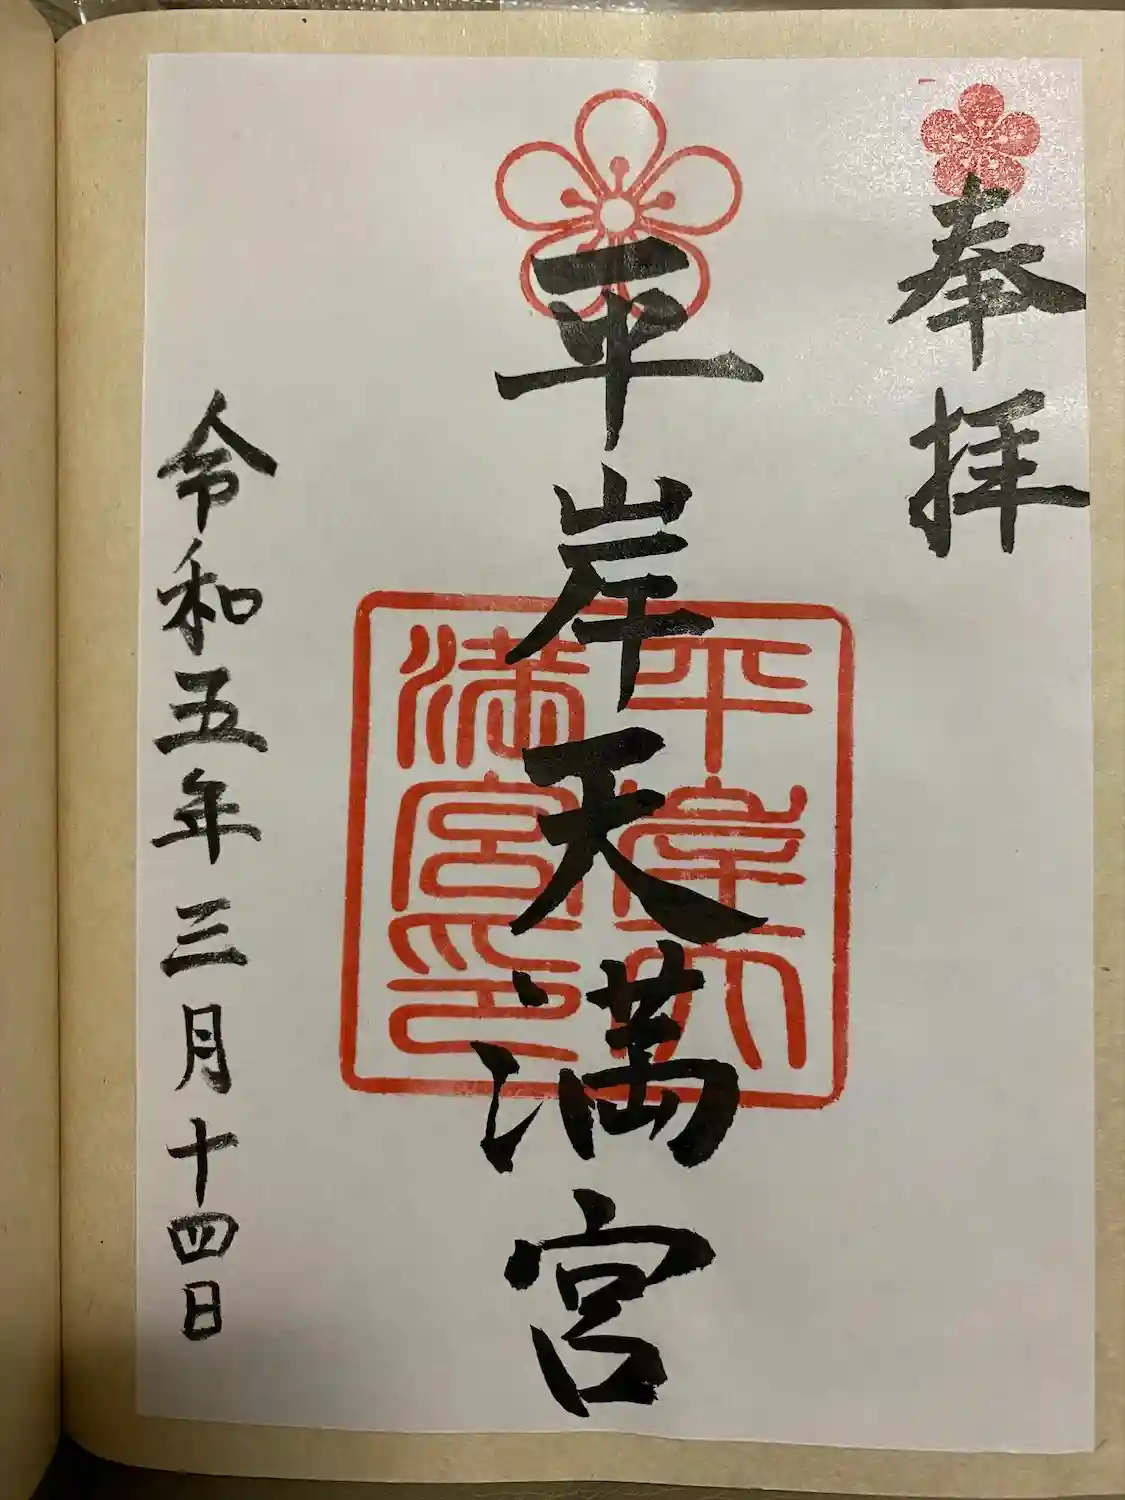 奉拝
平岸天満宮
平岸天
満宮印
令和五年三月十四日